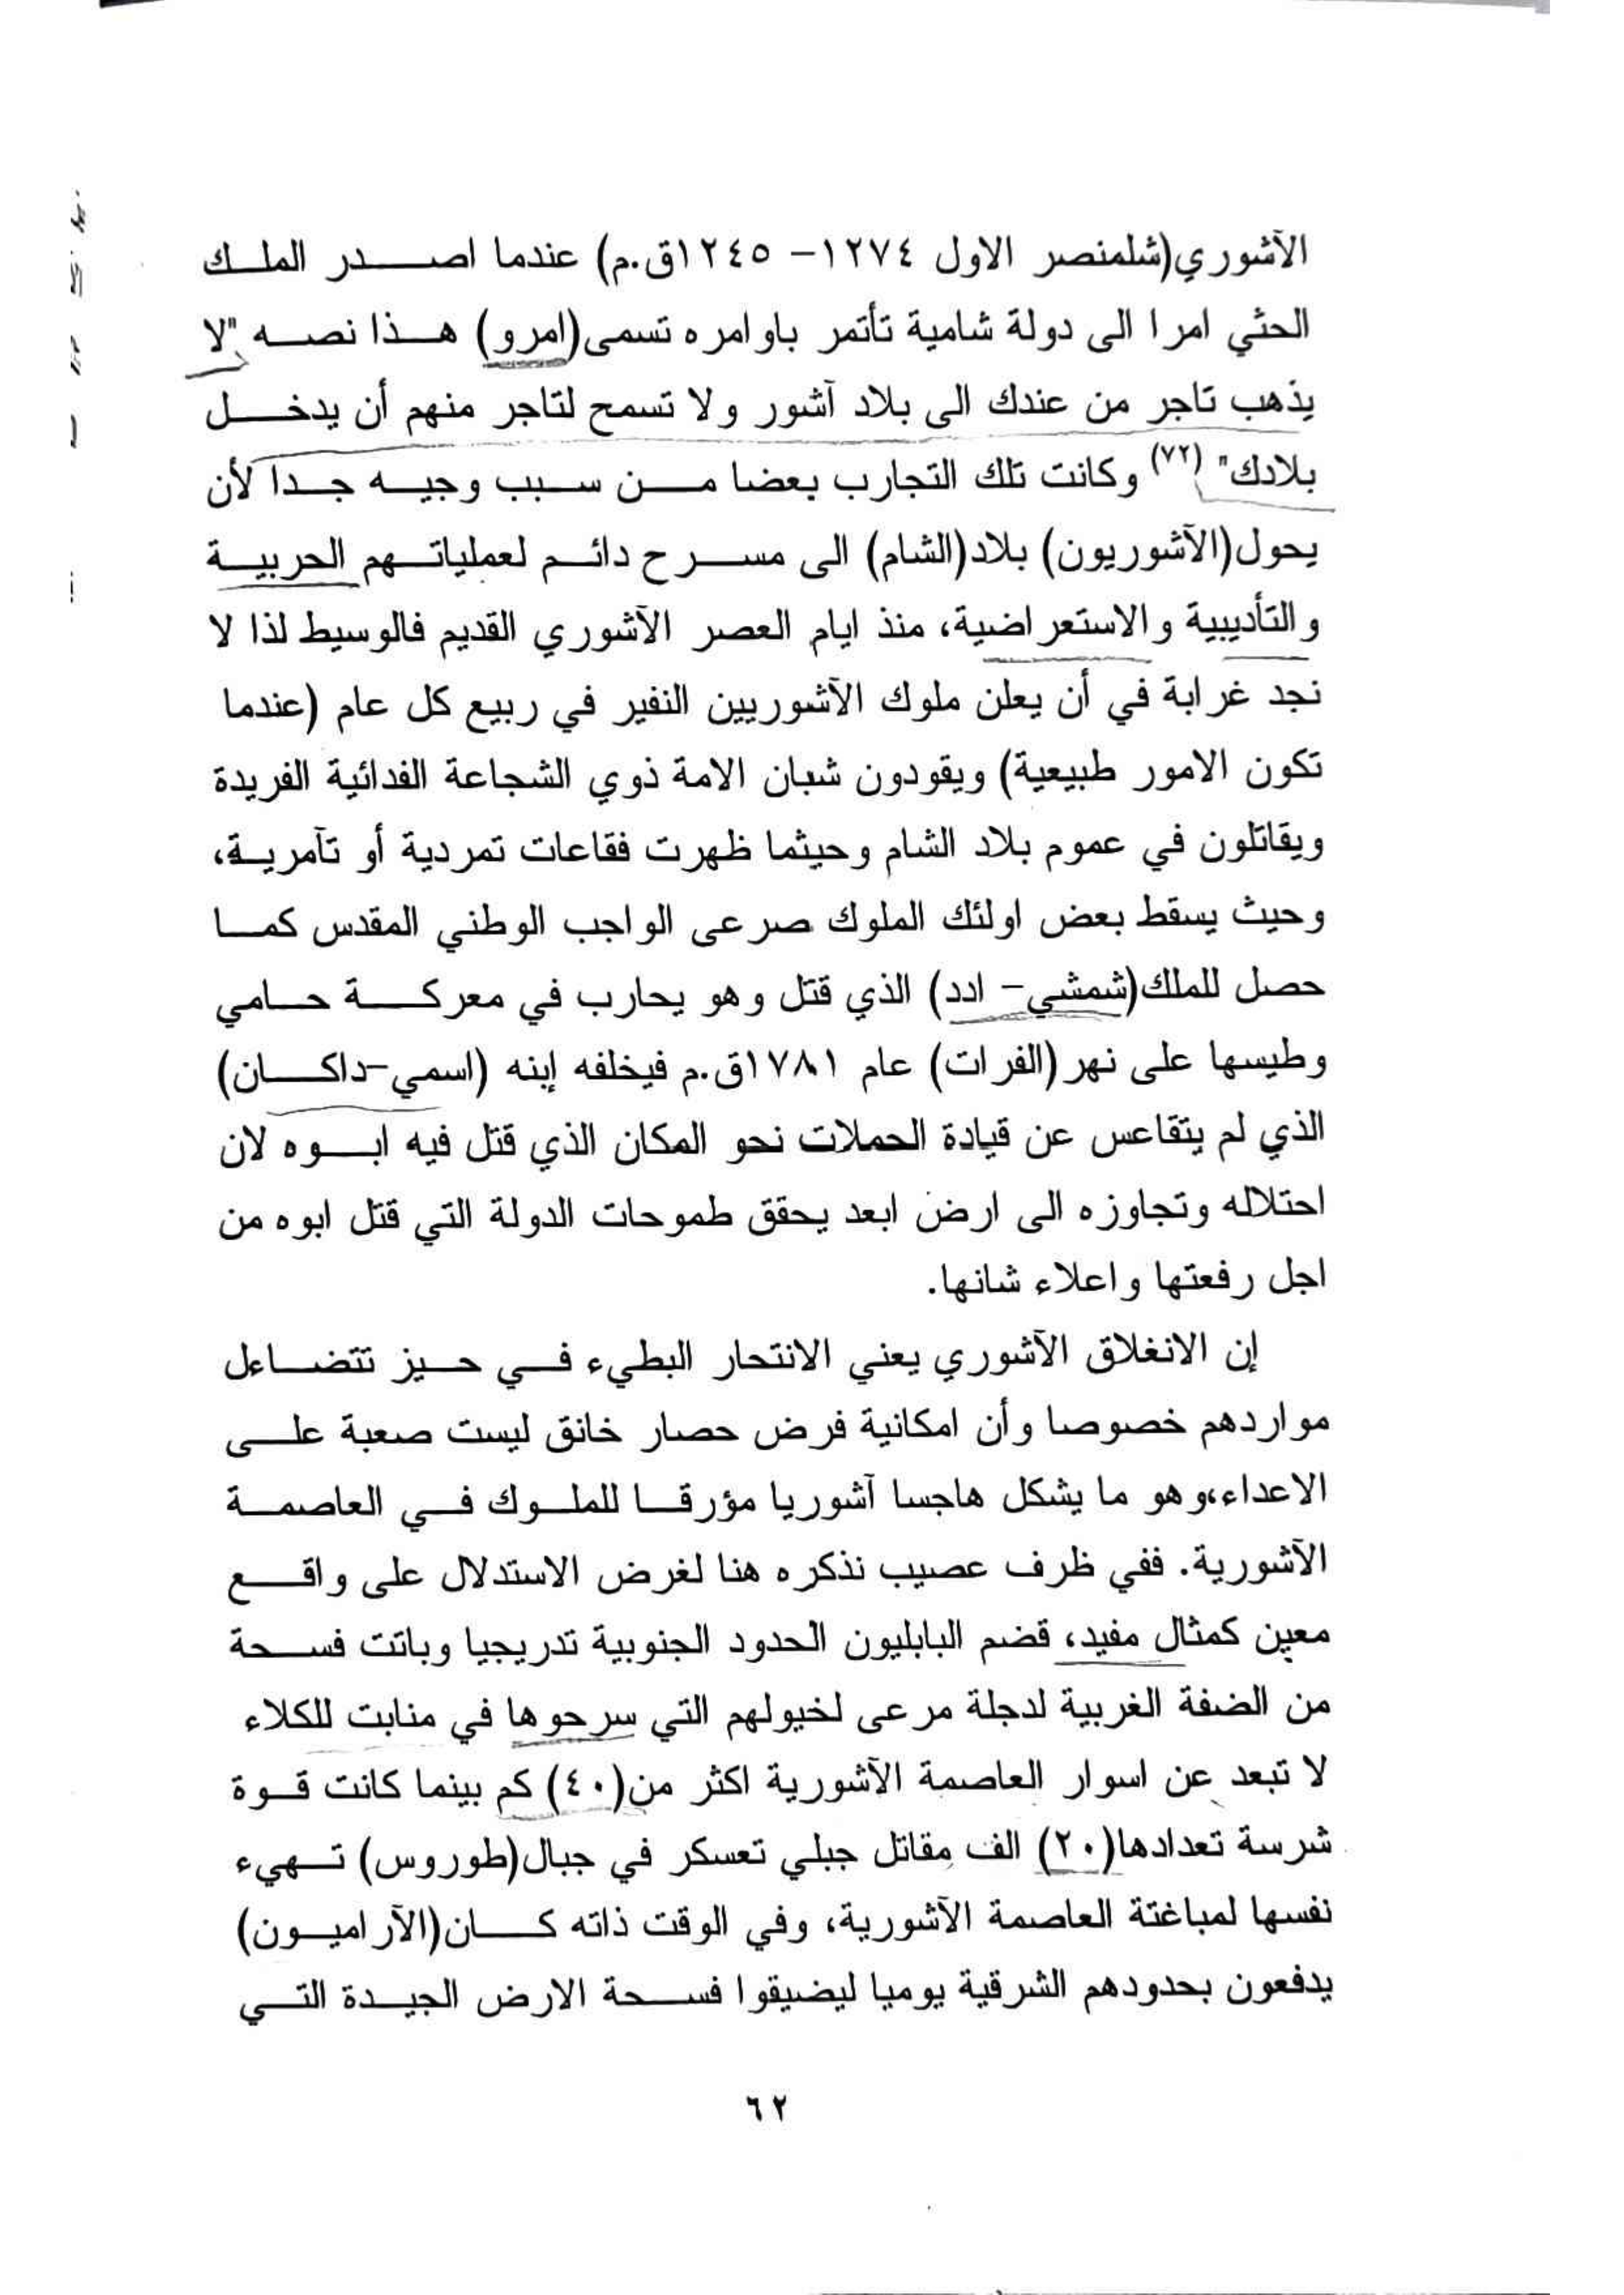 الآشوري(شلمنصر الاول ١٢٧٤- ١٢٤٥ق.م) عندما اصدر الملك
الحثي امرا الى دولة شامية تأتمر باوامره تسمى(امرو) هذا نصه "لا
يذهب تاجر من عندك الى بلاد آشور ولا تسمح لتاجر منهم أن يدخل
بلادك" (٧٢) وكانت تلك التجارب بعضا من سبب وجيه جدا لأن
يحول(الآشوريون) بلاد(الشام) الى مسرح دائم لعملياتهم الحربية
والتأديبية والاستعراضية، منذ ايام العصر الآشوري القديم فالوسيط لذا لا
نجد غرابة في أن يعلن ملوك الآشوريين النفير في ربيع كل عام (عندما
تكون الامور طبيعية) ويقودون شبان الامة ذوي الشجاعة الفدائية الفريدة
ويقاتلون في عموم بلاد الشام وحيثما ظهرت فقاعات تمردية أو تآمرية،
وحيث يسقط بعض اولئك الملوك صرعى الواجب الوطني المقدس كما
حصل للملك(شمشي- ادد) الذي قتل وهو يحارب في معركة حامي
وطيسها على نهر(الفرات) عام ١٧٨١ق.م فيخلفه إبنه (اسمي-داكان)
الذي لم يتقاعس عن قيادة الحملات نحو المكان الذي قتل فيه ابوه لان
احتلاله وتجاوزه الى ارض ابعد يحقق طموحات الدولة التي قتل ابوه من
اجل رفعتها واعلاء شانها.
إن الانغلاق الآشوري يعني الانتحار البطيء في حيز تتضاءل
مواردهم خصوصا وأن امكانية فرض حصار خانق ليست صعبة على
الاعداء،وهو ما يشكل هاجسا آشوريا مؤرقا للملوك في العاصمة
الآشورية. ففي ظرف عصيب نذكره هنا لغرض الاستدلال على واقع
معين كمثال مفيد، قضم البابليون الحدود الجنوبية تدريجيا وباتت فسحة
من الضفة الغربية لدجلة مرعى لخيولهم التي سرحوها في منابت للكلاء
لا تبعد عن اسوار العاصمة الآشورية اكثر من(٤٠) كم بينما كانت قوة
شرسة تعدادها(٢٠) الف مقاتل جبلي تعسكر في جبال(طوروس) تهيء
نفسها لمباغتة العاصمة الآشورية، وفي الوقت ذاته كان(الآراميون)
يدفعون بحدودهم الشرقية يوميا ليضيقوا فسحة الارض الجيدة التي
٦٢